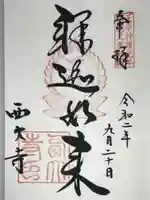 奉拝
令和二年
九月二十日
釈迦如来
西大寺